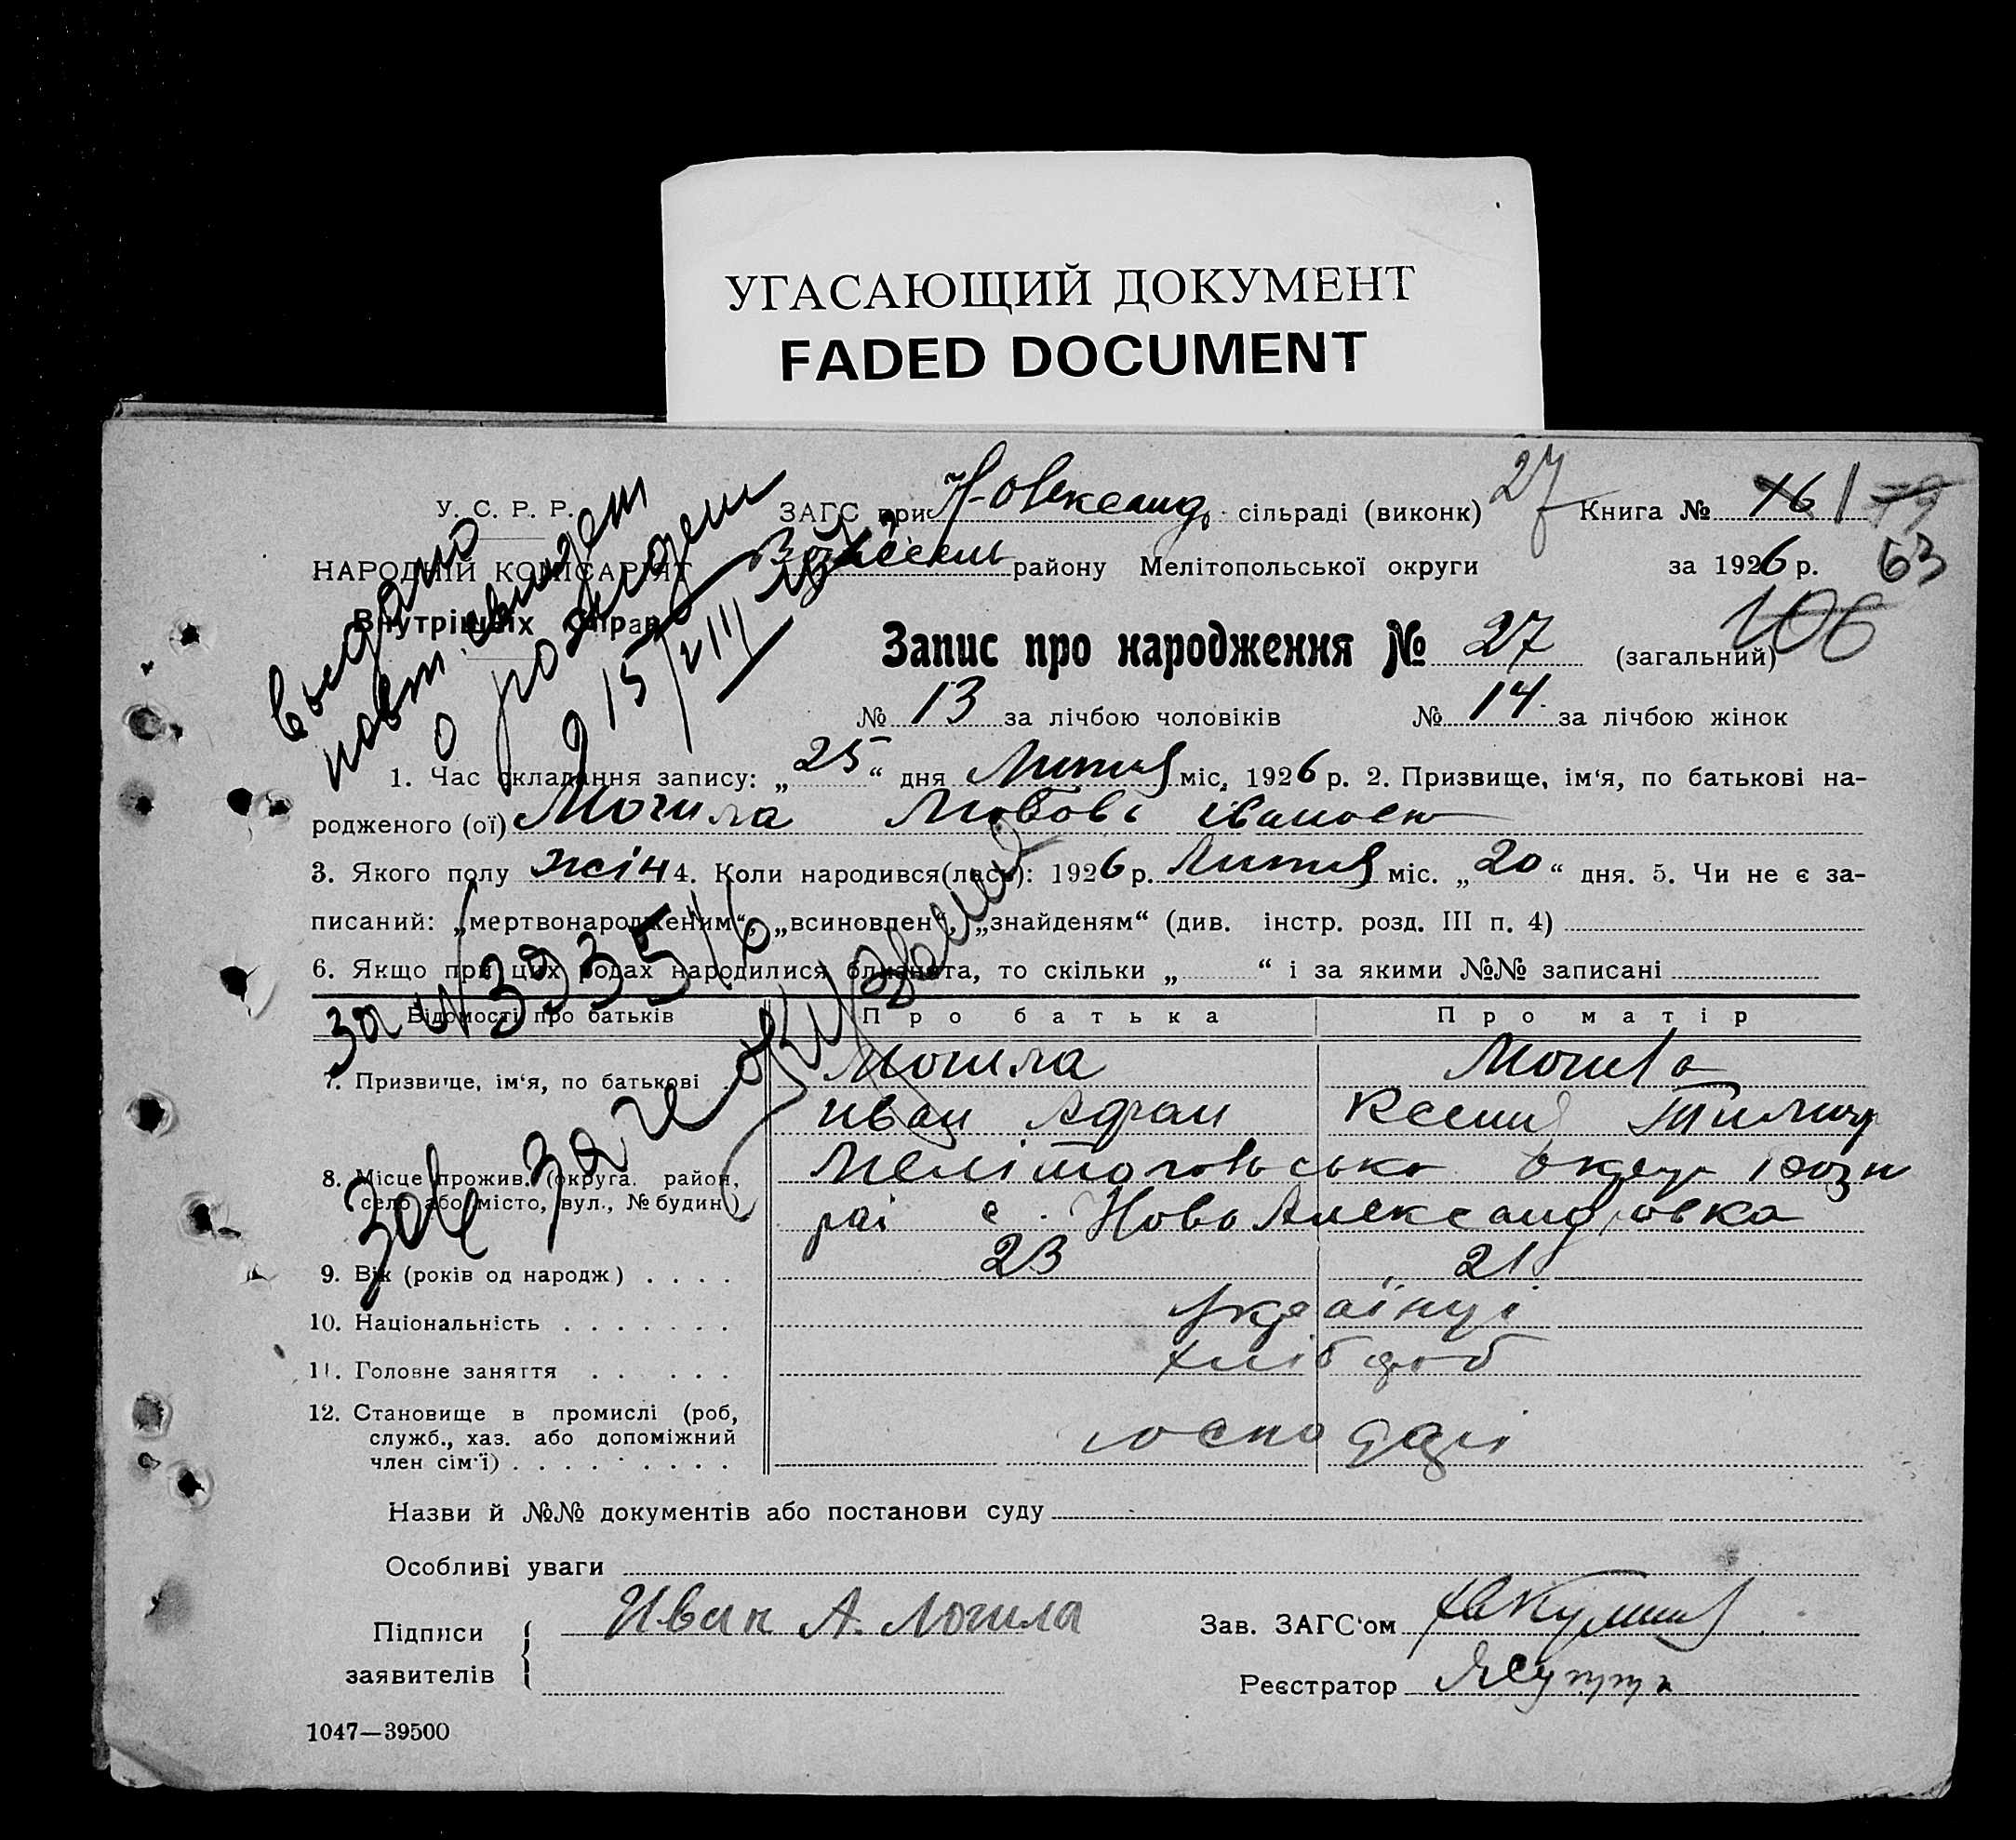 УГАСАЮЩИЙ ДОКУМЕНТ
FADED DOCUMENT
У. С. Р. Р.
НАРОДНІЙ КОМІСАРІЯТ
Внутрішніх Справ
выдано
повт. свидет
о рожден
15/VIII
ЗАГС при Н-Олександ. сільраді (виконк) 27 Книга № 16 1 79
району Мелітопольської округи за 1926 р. 63
Запис про народження № 27 (загальний) 106
№ 13 за лічбою чоловіків № 14 за лічбою жінок
1. Час складання запису: „25“ дня Липня міс, 1926 р. 2. Призвище, ім‘я, по батькові на-
родженого (ої) Могила Любовь Іванови
3. Якого полу жін 4. Коли народився(лась): 1926 р. Липня міс. „20“ дня. 5. Чи не є за-
писаний: „мертвонародженим“, „всиновлен“, „знайденям“ (див. інстр. розд. III п. 4)
6. Якщо при цих родах народилися близнята, то скільки „ “ і за якими №№ записані
Відомості про батьків Про батька Про матір
7. Призвище, ім‘я, по батькові Могила Могила
Иван Афан Ксения
8. Місце прожив. (округа. район, Мелітопольська округ Возн
село або місто, вул., № будин.) рай с. НовоАлександровка
9. Вік (років од народж) 23 21
10. Національність Українці
11. Головне заняття хлібороб
12. Становище в промислі (роб,
служб., хаз. або допоміжний
член сім‘ї) господарі
Назви й №№ документів або постанови суду
Особливі уваги
Підписи
заявителів
Иван А. Могила
Зав. ЗАГС‘ом
Реєстратор
1047—39500